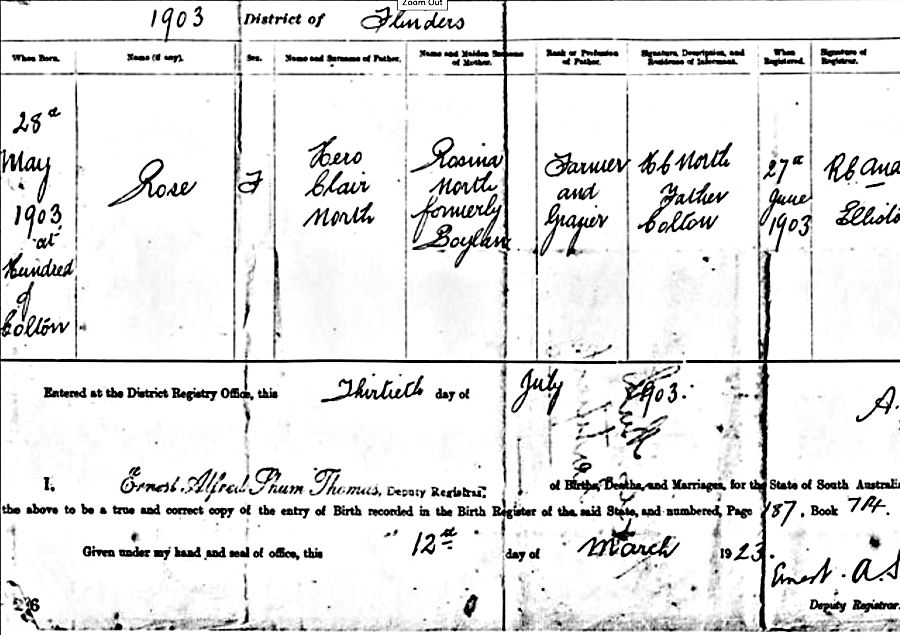 Zoom Out
1903 District of Flinders
When Born. Name (if any). Sex. Name and Surname of Father. Name and Maiden Surname of Mother. Rank or Profession of Father. Signature, Description, and Residence of Informant. When Registered. Signature of Registrar.
28th
May
1903
at
Hundred
of
Colton
Rose
F
Hero
Clair
North
Rosina
North
formerly
Boylan
Farmer
and
Grazier
H C North
Father
Colton
27th
June
1903
R C And
Elliston
Entered at the District Registry Office, this Thirtieth day of July 1903. A.
I, Ernest Alfred Thomas, Deputy Registrar, of Births, Deaths, and Marriages, for the State of South Australia
the above to be a true and correct copy of the entry of Birth recorded in the Birth Register of the said State, and numbered, Page 187, Book 714.
Given under my hand and seal of office, this 12th day of March 1923.
Ernest A S
Deputy Registrar.